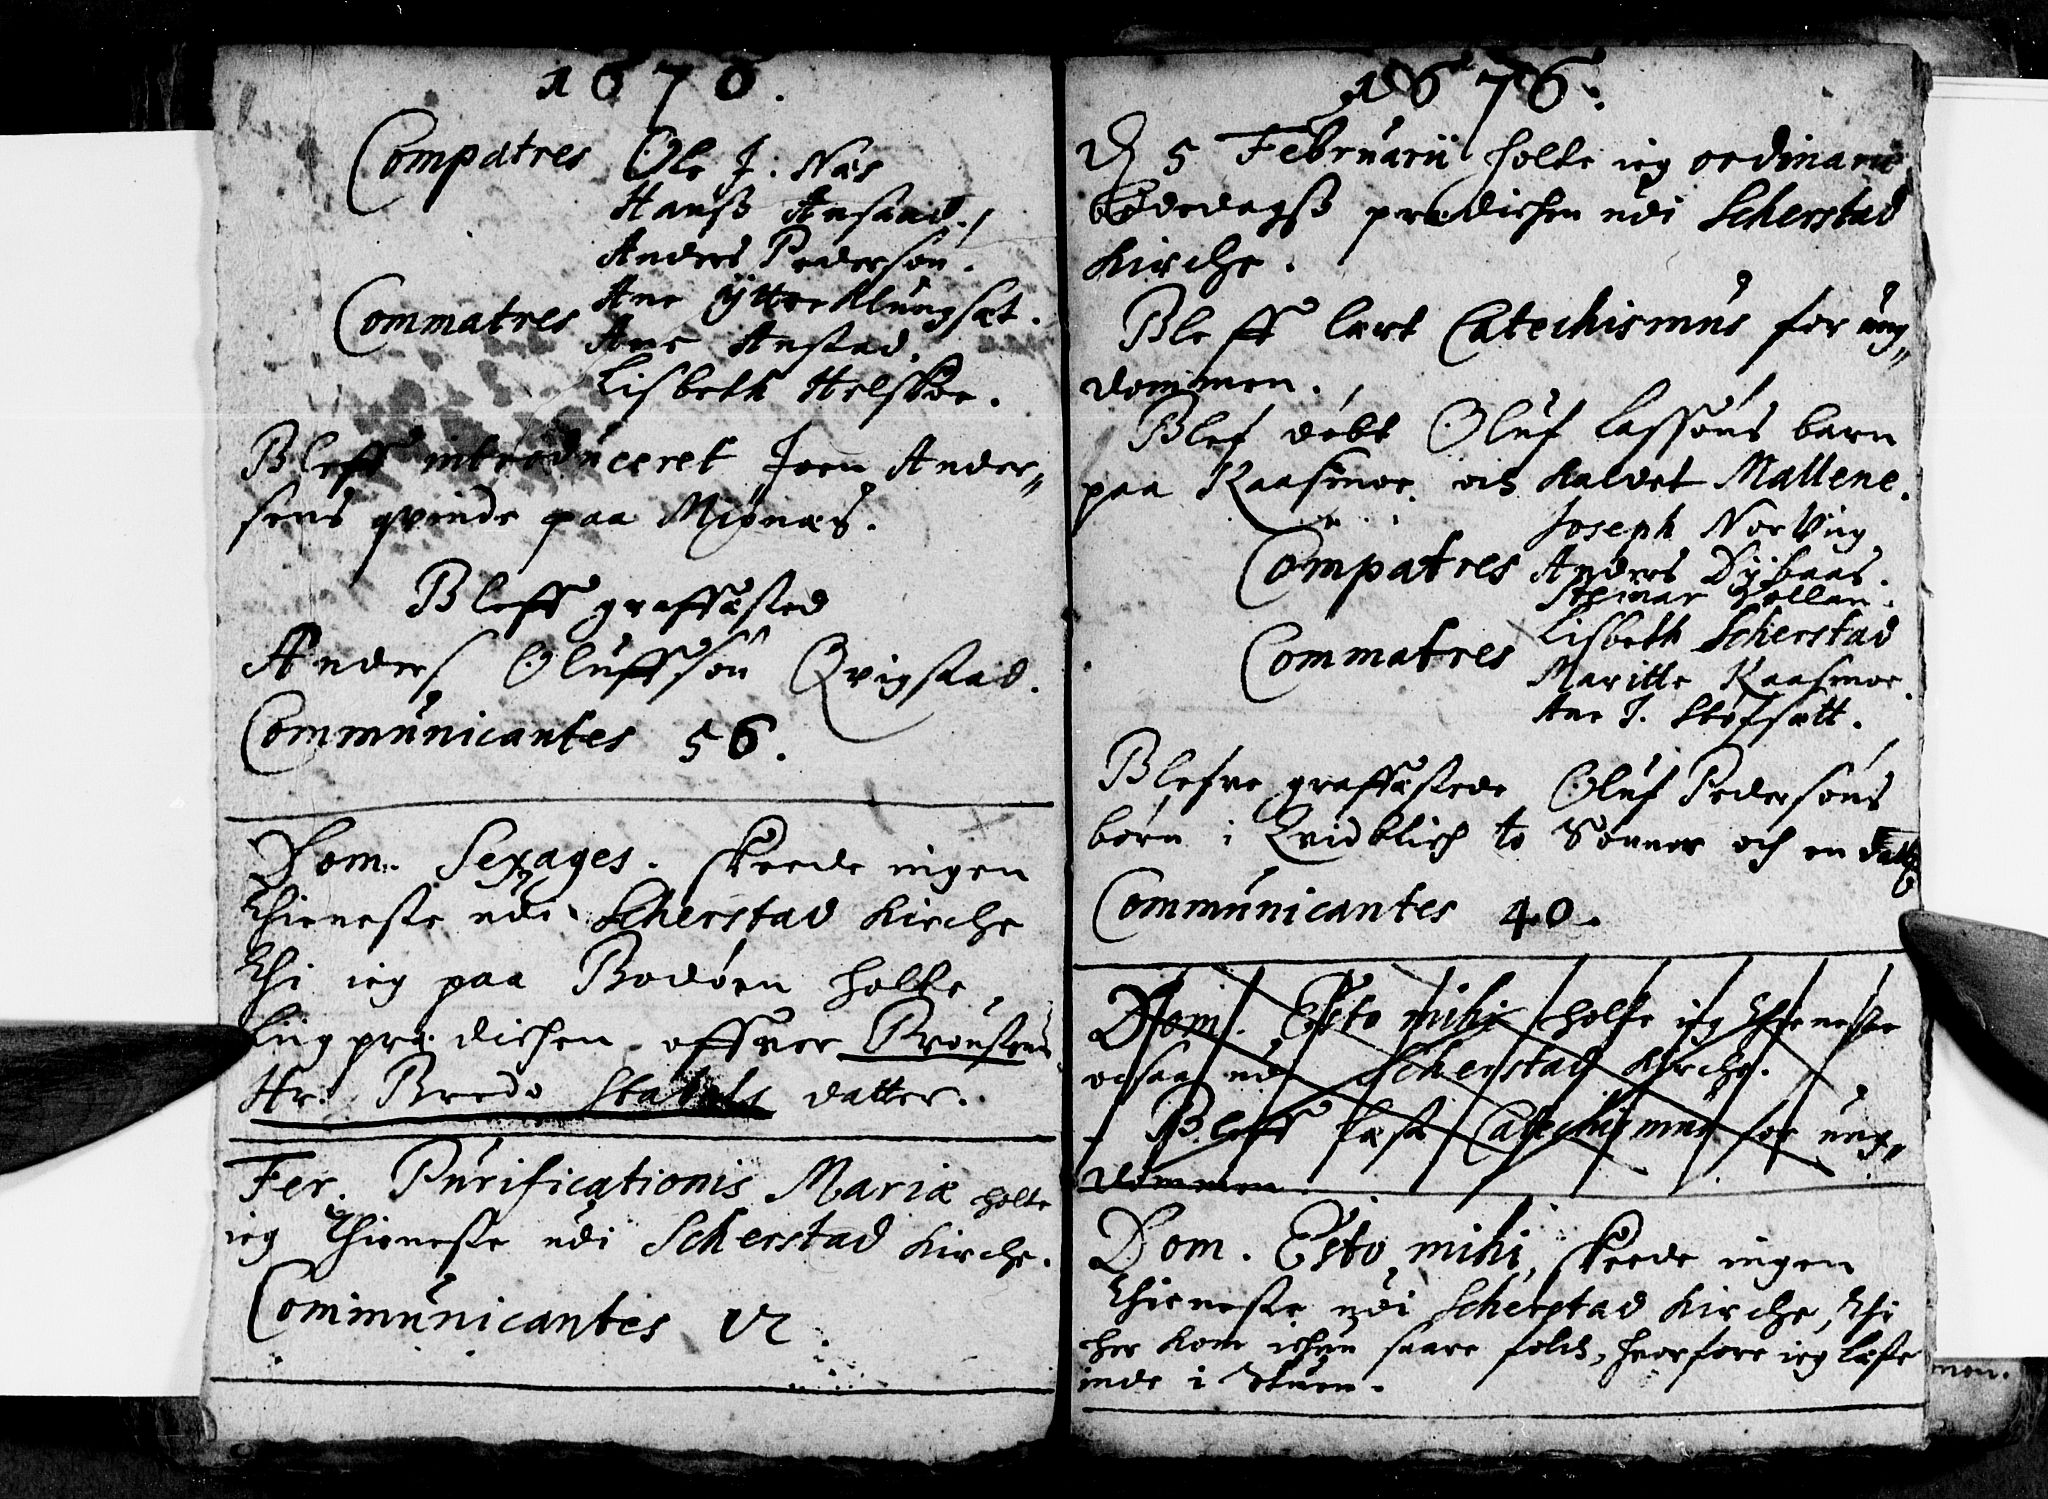 1676.
Compatres Ole J. Næs
Hanss Anstad.
Anders Pedersön.
Commatres Ane Ÿttre Klungset.
Ane Anstad.
Lisbeth Helskoe.
Bleff introduceret Joen Ander=
sens qvinde paa Miønæs.
Bleff graffæsted
Anders Oluffsön Qvigstad.
Communicantes 56.
Dom. Sexages. skeede ingen
thieneste udi Scherstad Kirche
thi ieg paa Bodöen holte
liig prædichen offver Provsten
Hr. Bredo Stabels datter.
Fer. Purificationis Mariæ holte
ieg thieneste udi Scherstad Kirche.
Communicantes 12.
1676.
D 5 Februarii holte ieg ordinarie
Bededagss prædichen udi Scherstad
Kirche.
Bleff lært Catechismus for ung=
dommen.
Blef döbt Oluf Lassöns barn
paa Kaasmoe och kaldet Mallene.
Joseph Norving
Compatres Anders Dÿbaas.
Lisbeth Scherstad
Commatres Maritte Kaasmoe.
Ane J. Slefsætt.
Blefve graffæstede Oluf Pedersöns
börn i Qvidblich to Sönner och en datter
Communicantes 40.
Dom. Esto mihi holte ieg thieneste
ocsaa udi Scherstad Kirche.
Bleff læst Catechismus for ung=
dommen.
Dom. Esto mihi, skeede ingen
thieneste udi Scherstad Kirche, thi
her kom ichun faare folck, hvorfore ieg læste
inde i Stuen.